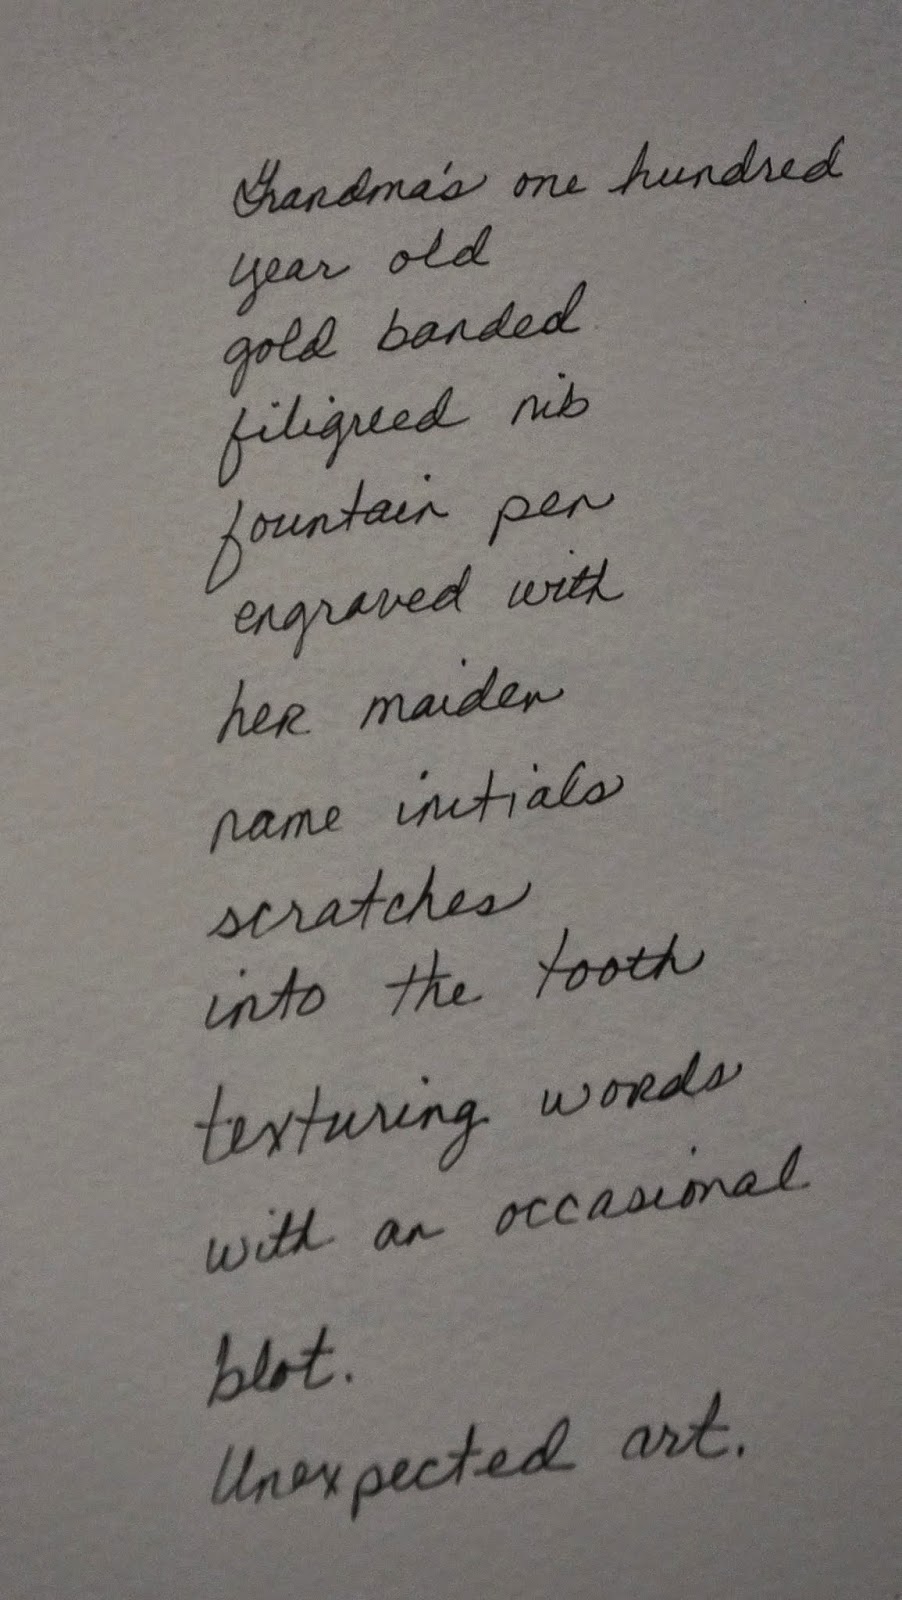 Grandma's one hundred
year old
gold banded
filigreed nib
fountain pen
engraved with
her maiden
name initials
scratches
into the tooth
texturing words
with an occasional
blot.
Unexpected art.